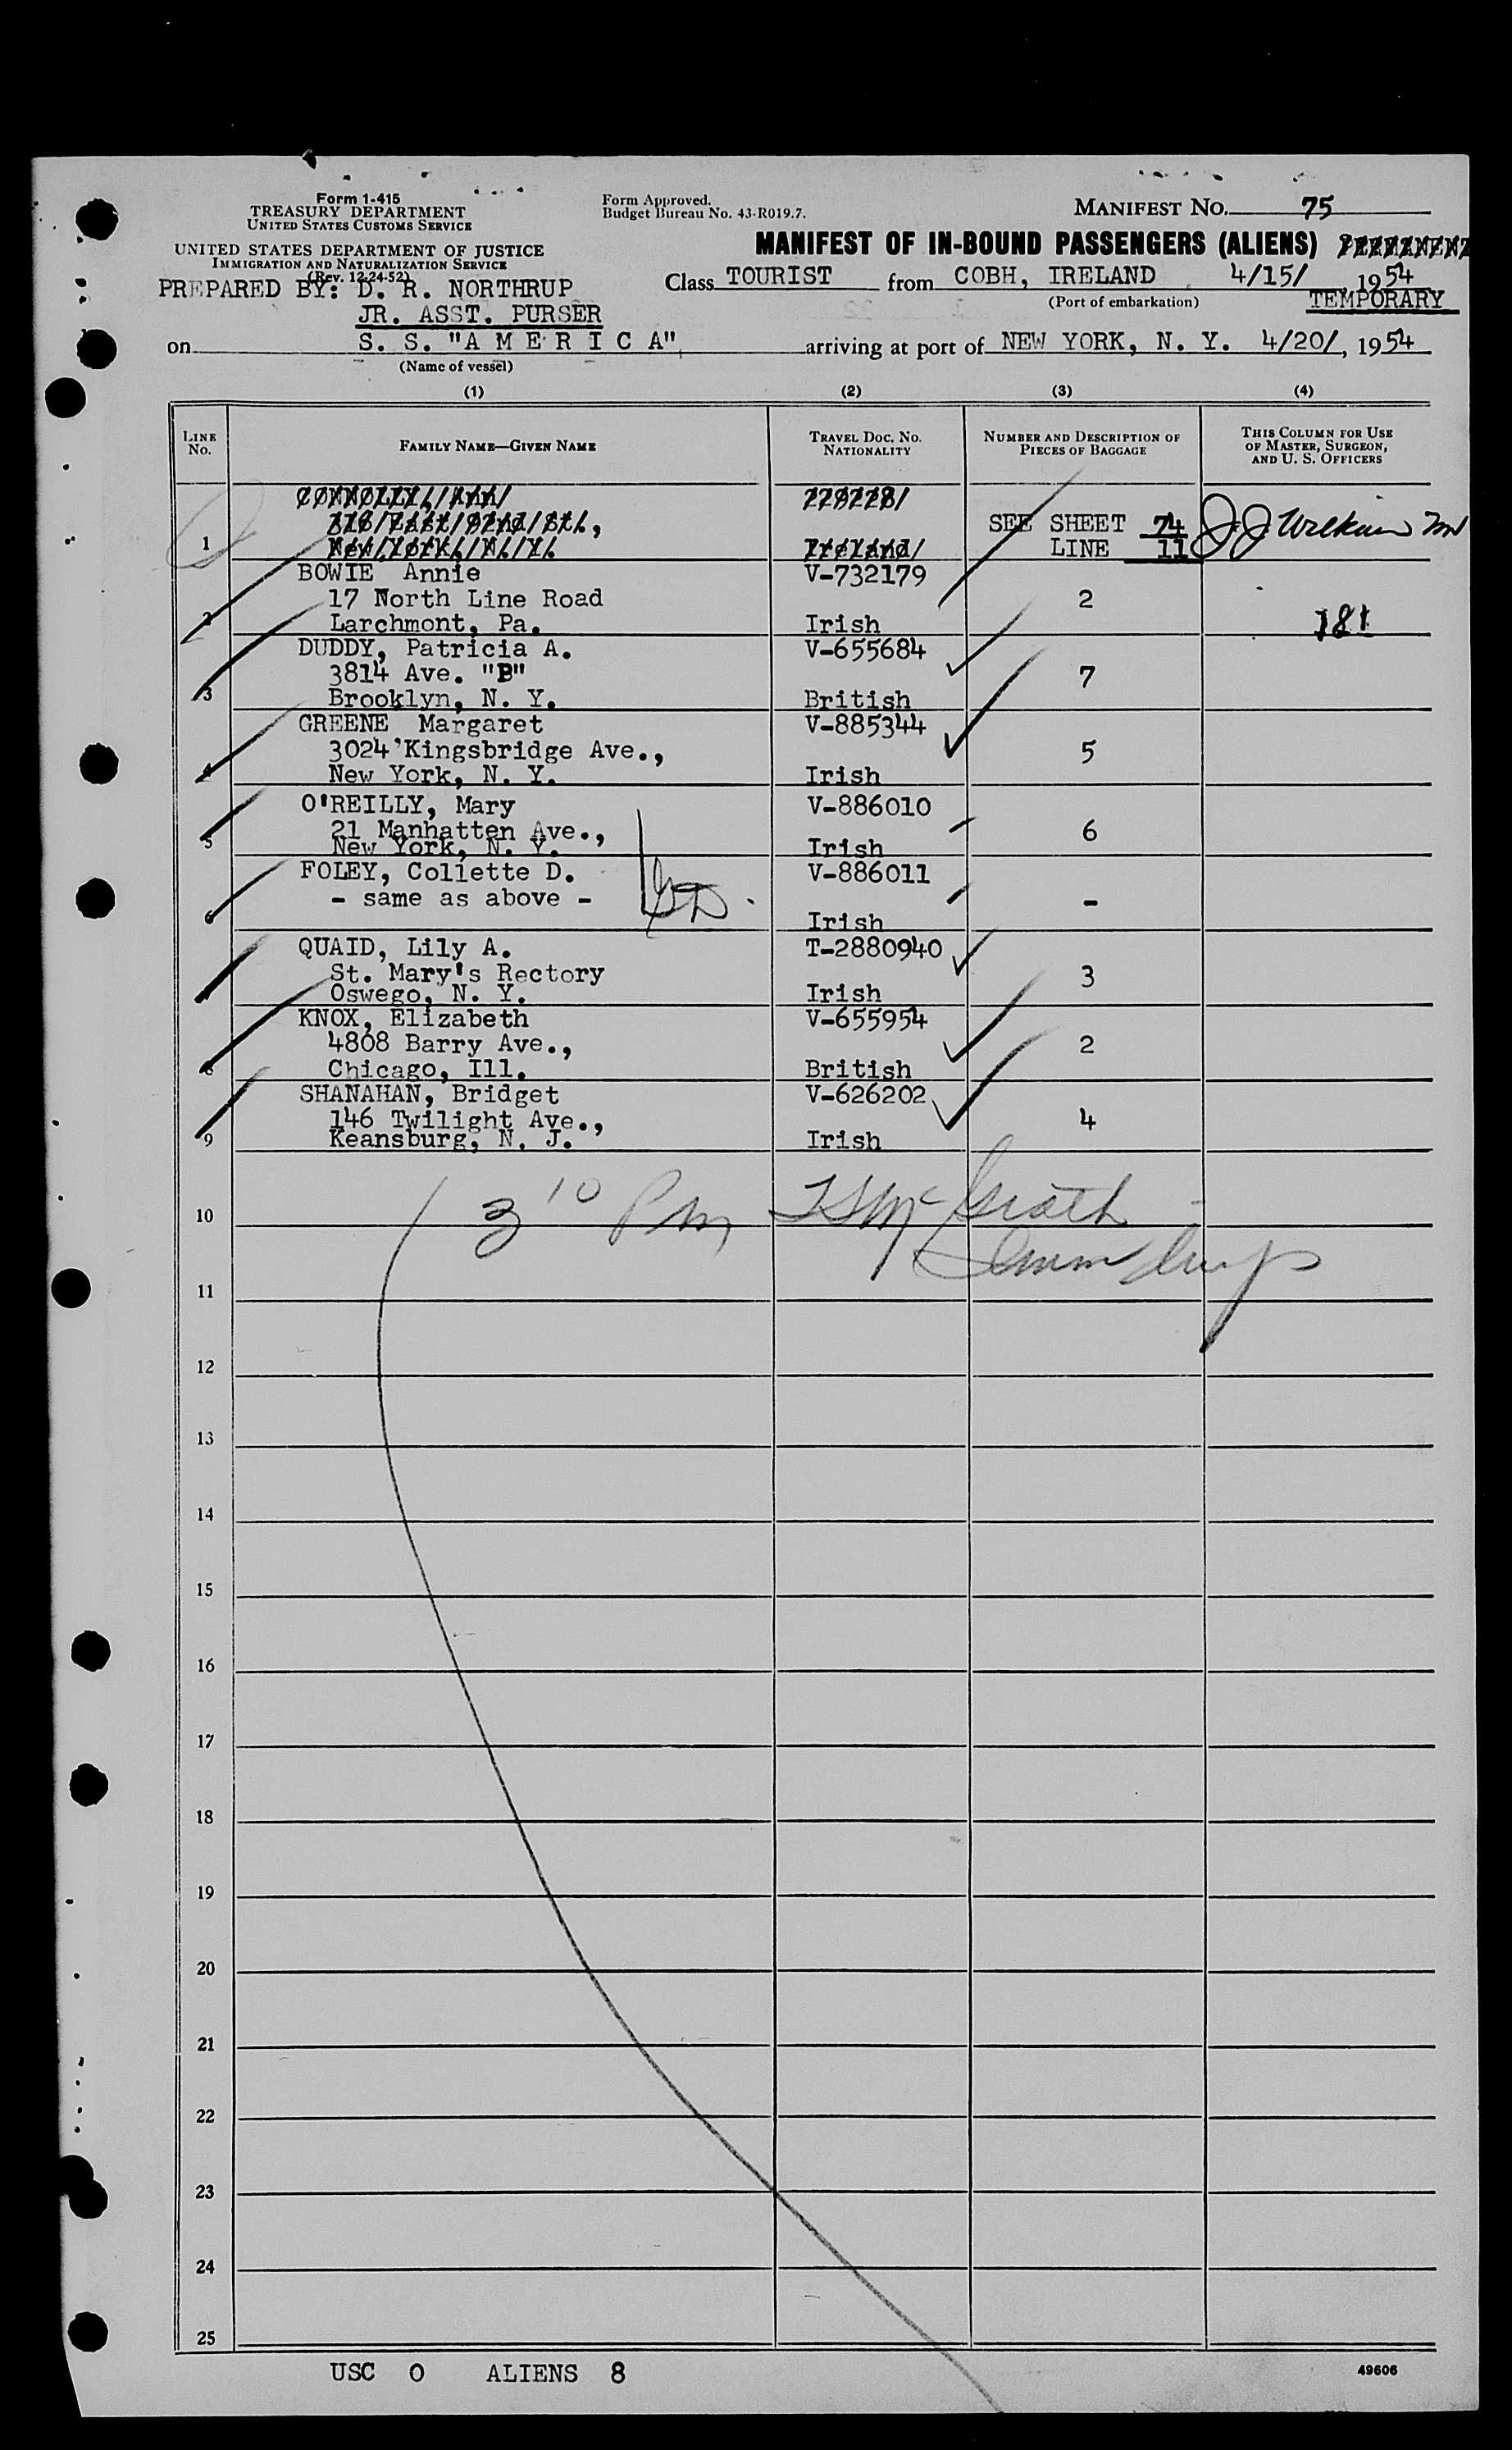 Form 1-415
TREASURY DEPARTMENT
UNITED STATES CUSTOMS SERVICE
UNITED STATES DEPARTMENT OF JUSTICE
IMMIGRATION AND NATURALIZATION SERVICE
(Rev. 12-24-52)
Form Approved.
Budget Bureau No. 43-R019.7.
MANIFEST NO. 75
MANIFEST OF IN-BOUND PASSENGERS (ALIENS) PERMANENT
PREPARED BY: D. R. NORTHRUP
JR. ASST. PURSER
Class TOURIST from COBH, IRELAND 4/15/, 1954
(Port of embarkation)
TEMPORARY
on S. S. "A M E R I C A", arriving at port of NEW YORK, N. Y. 4/20/, 1954
(Name of vessel)
(1) (2) (3) (4)
LINE NO.
FAMILY NAME—GIVEN NAME
TRAVEL DOC. NO.
NATIONALITY
NUMBER AND DESCRIPTION OF
PIECES OF BAGGAGE
THIS COLUMN FOR USE
OF MASTER, SURGEON,
AND U. S. OFFICERS
CONNOLLY, Ann
East St.,
1 New York, N. Y. Ireland
SEE SHEET 74
LINE 11
J J Wilkins MD
BOWIE Annie V-732179
17 North Line Road 2
2 Larchmont, Pa. Irish 181
DUDDY, Patricia A. V-655684
3814 Ave. "B" 7
3 Brooklyn, N. Y. British
GREENE Margaret V-885344
3024 Kingsbridge Ave., 5
4 New York, N. Y. Irish
O'REILLY, Mary V-886010
21 Manhatten Ave., 6
5 New York, N. Y. Irish
FOLEY, Collette D. V-886011
- same as above - -
6 Irish
QUAID, Lily A. T-2880940
St. Mary's Rectory 3
7 Oswego, N. Y. Irish
KNOX, Elizabeth V-655954
4808 Barry Ave., 2
8 Chicago, Ill. British
SHANAHAN, Bridget V-626202
146 Twilight Ave., 4
9 Keansburg, N. J. Irish
10 3 10 Pm McGrath
Imm Insp
11
12
13
14
15
16
17
18
19
20
21
22
23
24
25
USC 0 ALIENS 8
49606